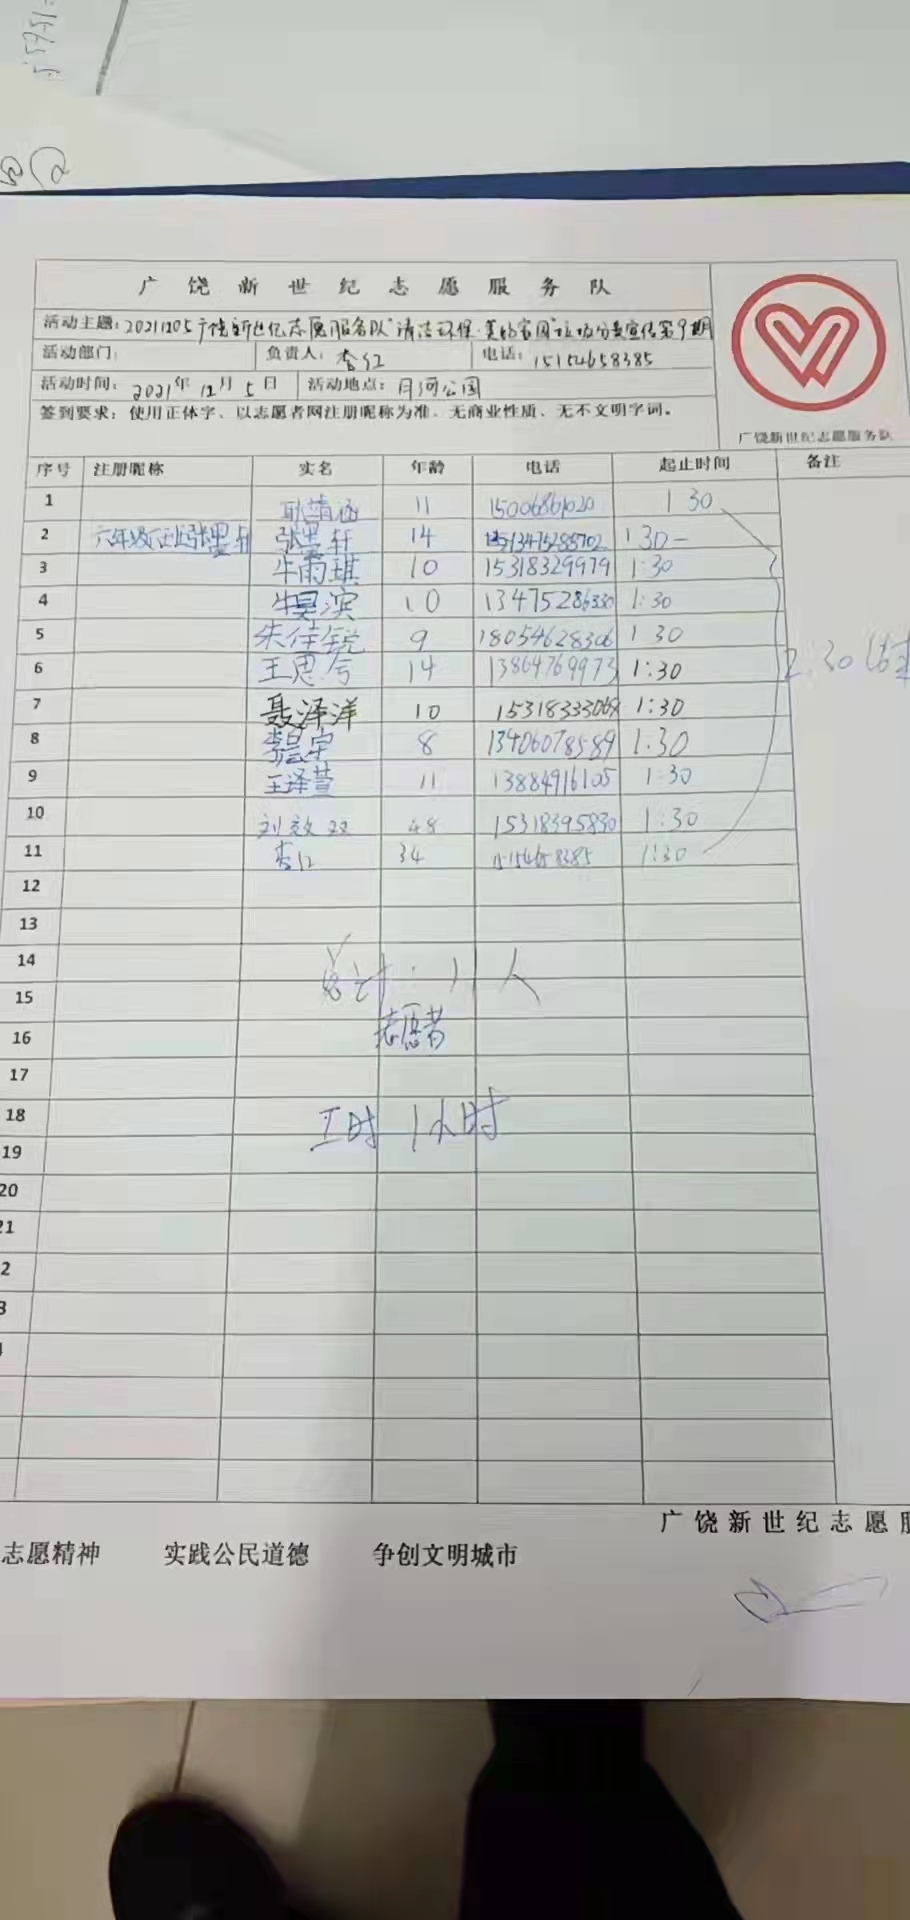 广饶新世纪志愿服务队
活动主题：20211205广饶新世纪志愿服务队"清洁环保·美好家园"垃圾分类宣传第9期
活动部门： 负责人：杏红 电话：15154658385
活动时间：2021年12月5日 活动地点：月河公园
签到要求：使用正体字、以志愿者网注册昵称为准、无商业性质、无不文明字词。
广饶新世纪志愿服务队
序号 注册昵称 实名 年龄 电话 起止时间 备注
1 耿靖涵 11 15006861020 1 30
2 张墨轩 14 13475288702 1 30-
3 牛雨琪 10 15318329979 1:30
4 牛昊滨 10 13475286330 1:30
5 朱佳锐 9 18054628306 1 30
6 王思兮 14 13864769973 1:30
2:30结束
7 聂泽洋 10 15318333069 1:30
8 李昱宇 8 13406078589 1:30
9 王泽萱 11 13884916105 1:30
10 刘效双 48 15318395830 1:30
11 杏红 34 15154658385 1:30
12
13
14
总计：11人
15
16 志愿者
17
18 工时 1小时
19
20
21
2
3
广饶新世纪志愿服
志愿精神 实践公民道德 争创文明城市